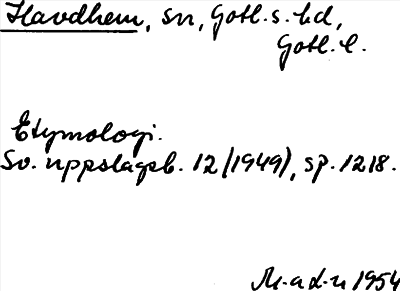 Havdhem, sn, Gotl. s. hd,
Gotl. l.
Etymologi.
Sv. uppslagsb. 12 (1949), sp. 1218.
M-a d-n 1954